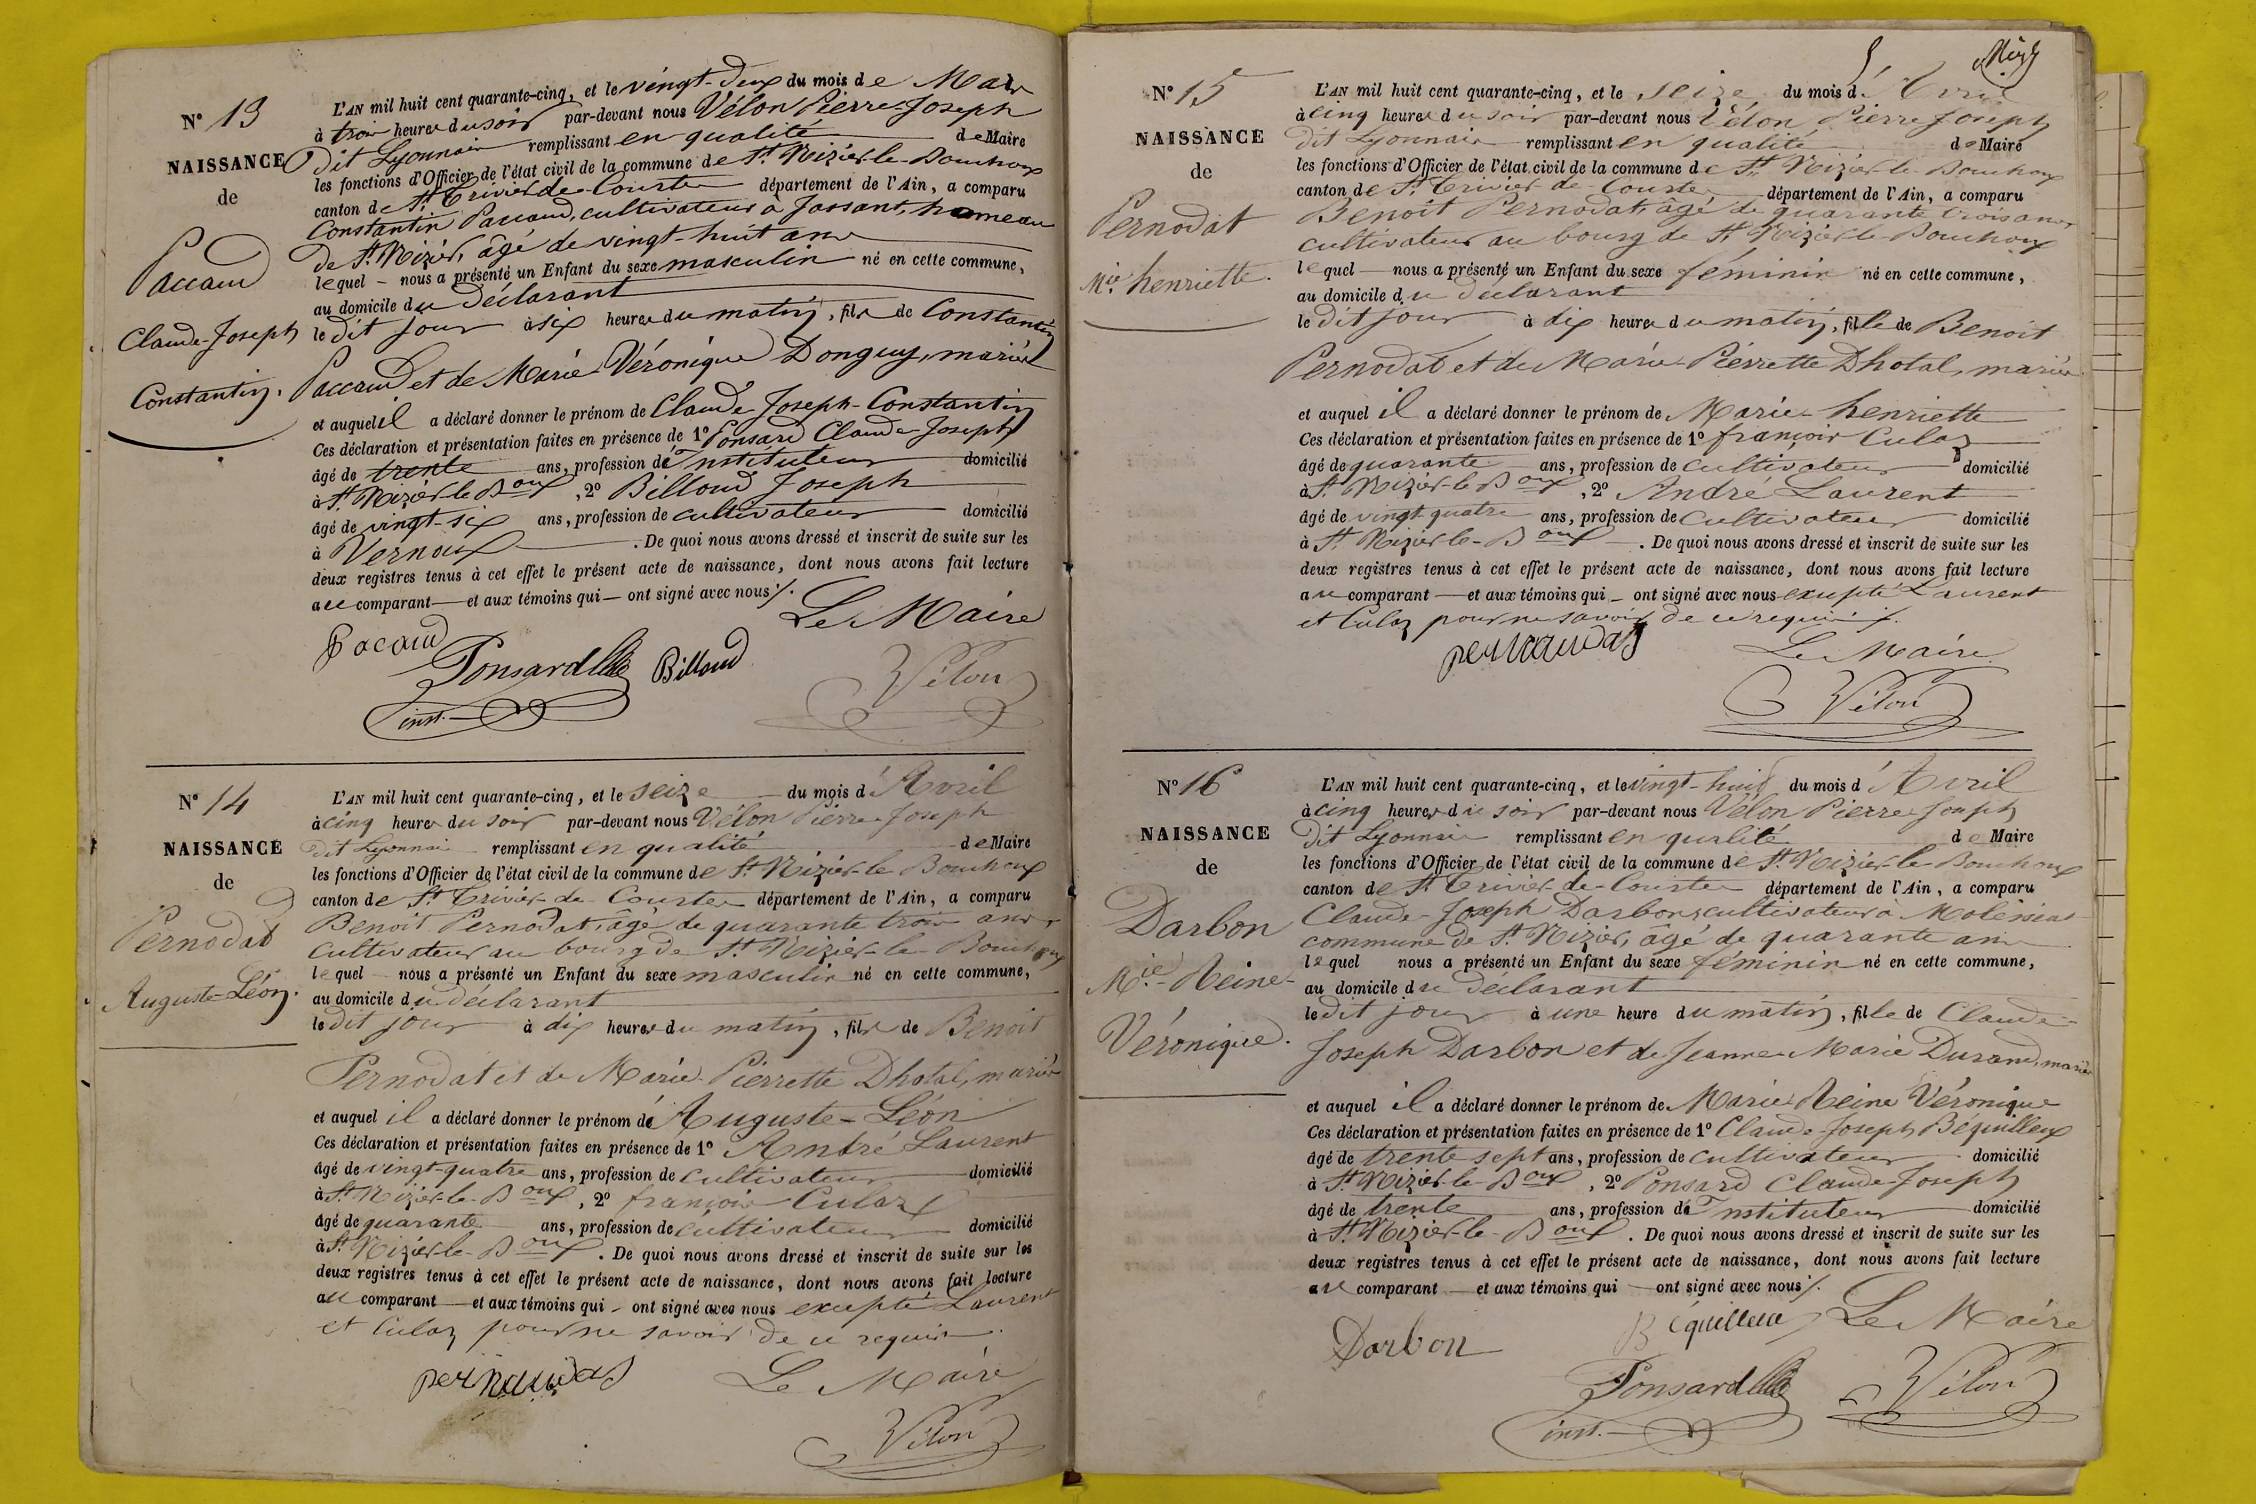 N° 13
NAISSANCE
de
Paccaud
Claude-Joseph
Constantin.
L'AN mil huit cent quarante-cinq, et le vingt-deux du mois de Mars
à trois heures du soir par-devant nous Vélon Pierre-Joseph
dit Lyonnais remplissant en qualité de Maire
les fonctions d'Officier de l'état civil de la commune de St. Nizier-le-Bouchoux
canton de St. Trivier-de-Courtes département de l'Ain, a comparu
Constantin Paccaud, cultivateur à Jassant, hameau
de St. Nizier, âgé de vingt-huit ans
lequel – nous a présenté un Enfant du sexe masculin né en cette commune,
au domicile du déclarant
le dit jour à six heures du matin, fils de Constantin
Paccaud et de Marie Véronique Donguy, mariés
et auquel il a déclaré donner le prénom de Claude-Joseph-Constantin
Ces déclaration et présentation faites en présence de 1° Ponsard Claude-Joseph
âgé de trente ans, profession d'Instituteur domicilié
à St. Nizier-le-Boux, 2° Billoud Joseph
âgé de vingt-six ans, profession de cultivateur domicilié
à Vernoux . De quoi nous avons dressé et inscrit de suite sur les
deux registres tenus à cet effet le présent acte de naissance, dont nous avons fait lecture
au comparant — et aux témoins qui — ont signé avec nous ./.
Le Maire
Pacaud
Ponsard
Billoud
Vélon
inst.
N° 14
NAISSANCE
de
Pernodat
Auguste-Léon.
L'AN mil huit cent quarante-cinq, et le seize du mois d'Avril
à cinq heures du soir par-devant nous Vélon Pierre Joseph
dit Lyonnais remplissant en qualité de Maire
les fonctions d'Officier de l'état civil de la commune de St. Nizier-le-Bouchoux
canton de St. Trivier-de-Courtes département de l'Ain, a comparu
Benoit Pernodat, âgé de quarante trois ans,
cultivateur au bourg de St. Nizier-le-Bouchoux
lequel nous a présenté un Enfant du sexe masculin né en cette commune,
au domicile du déclarant
le dit jour à dix heures du matin, fils de Benoit
Pernodat et de Marie-Pierrette Dhotal, mariés
et auquel il a déclaré donner le prénom d'Auguste-Léon
Ces déclaration et présentation faites en présence de 1° André Laurent
âgé de vingt-quatre ans, profession de cultivateur domicilié
à St. Nizier-le-Boux, 2° françois Culaz
âgé de quarante ans, profession de cultivateur domicilié
à St. Nizier-le-Boux. De quoi nous avons dressé et inscrit de suite sur les
deux registres tenus à cet effet le présent acte de naissance, dont nous avons fait lecture
au comparant — et aux témoins qui – ont signé avec nous excepté Laurent
et Culaz pour ne savoir de ce requis.
Le Maire
Vélon
N° 15
NAISSANCE
de
Pernodat
Mie henriette.
L'AN mil huit cent quarante-cinq, et le seize du mois d'Avril
à cinq heures du soir par-devant nous Vélon Pierre Joseph
dit Lyonnais remplissant en qualité de Maire
les fonctions d'Officier de l'état civil de la commune de St. Nizier-le-Bouchoux
canton de St. Trivier-de-Courtes département de l'Ain, a comparu
Benoit Pernodat, âgé de quarante trois ans,
cultivateur au bourg de St. Nizier-le-Bouchoux
lequel — nous a présenté un Enfant du sexe féminin né en cette commune,
au domicile du déclarant
le dit jour à dix heures du matin, fille de Benoit
Pernodat et de Marie-Pierrette Dhotal, mariés
et auquel il a déclaré donner le prénom de Marie-henriette
Ces déclaration et présentation faites en présence de 1° françois Culaz
âgé de quarante ans, profession de cultivateur domicilié
à St. Nizier-le-Boux, 2° André Laurent
âgé de vingt quatre ans, profession de cultivateur domicilié
à St. Nizier-le-Boux. De quoi nous avons dressé et inscrit de suite sur les
deux registres tenus à cet effet le présent acte de naissance, dont nous avons fait lecture
au comparant — et aux témoins qui – ont signé avec nous excepté Laurent
et Culaz pour ne savoir de ce requis ./.
Le Maire
Vélon
N° 16
NAISSANCE
de
Darbon
Mie-Reine-
Véronique.
L'AN mil huit cent quarante-cinq, et le vingt-huit du mois d'Avril
à cinq heures du soir par-devant nous Vélon Pierre Joseph
dit Lyonnais remplissant en qualité de Maire
les fonctions d'Officier de l'état civil de la commune de St. Nizier-le-Bouchoux
canton de St. Trivier-de-Courtes département de l'Ain, a comparu
Claude-Joseph Darbon, cultivateur à
commune de St. Nizier, âgé de quarante ans
lequel nous a présenté un Enfant du sexe féminin né en cette commune,
au domicile du déclarant
le dit jour à une heure du matin, fille de Claude-
Joseph Darbon et de Jeanne Marie Durand, mariés
et auquel il a déclaré donner le prénom de Marie Reine Véronique
Ces déclaration et présentation faites en présence de 1° Claude-Joseph Béquilleux
âgé de trente sept ans, profession de cultivateur domicilié
à St. Nizier-le-Boux, 2° Ponsard Claude-Joseph
âgé de trente ans, profession d'Instituteur domicilié
à St. Nizier-le-Boux. De quoi nous avons dressé et inscrit de suite sur les
deux registres tenus à cet effet le présent acte de naissance, dont nous avons fait lecture
au comparant — et aux témoins qui — ont signé avec nous ./.
Béquilleux
Le Maire
Darbon
Ponsard
Vélon
inst.